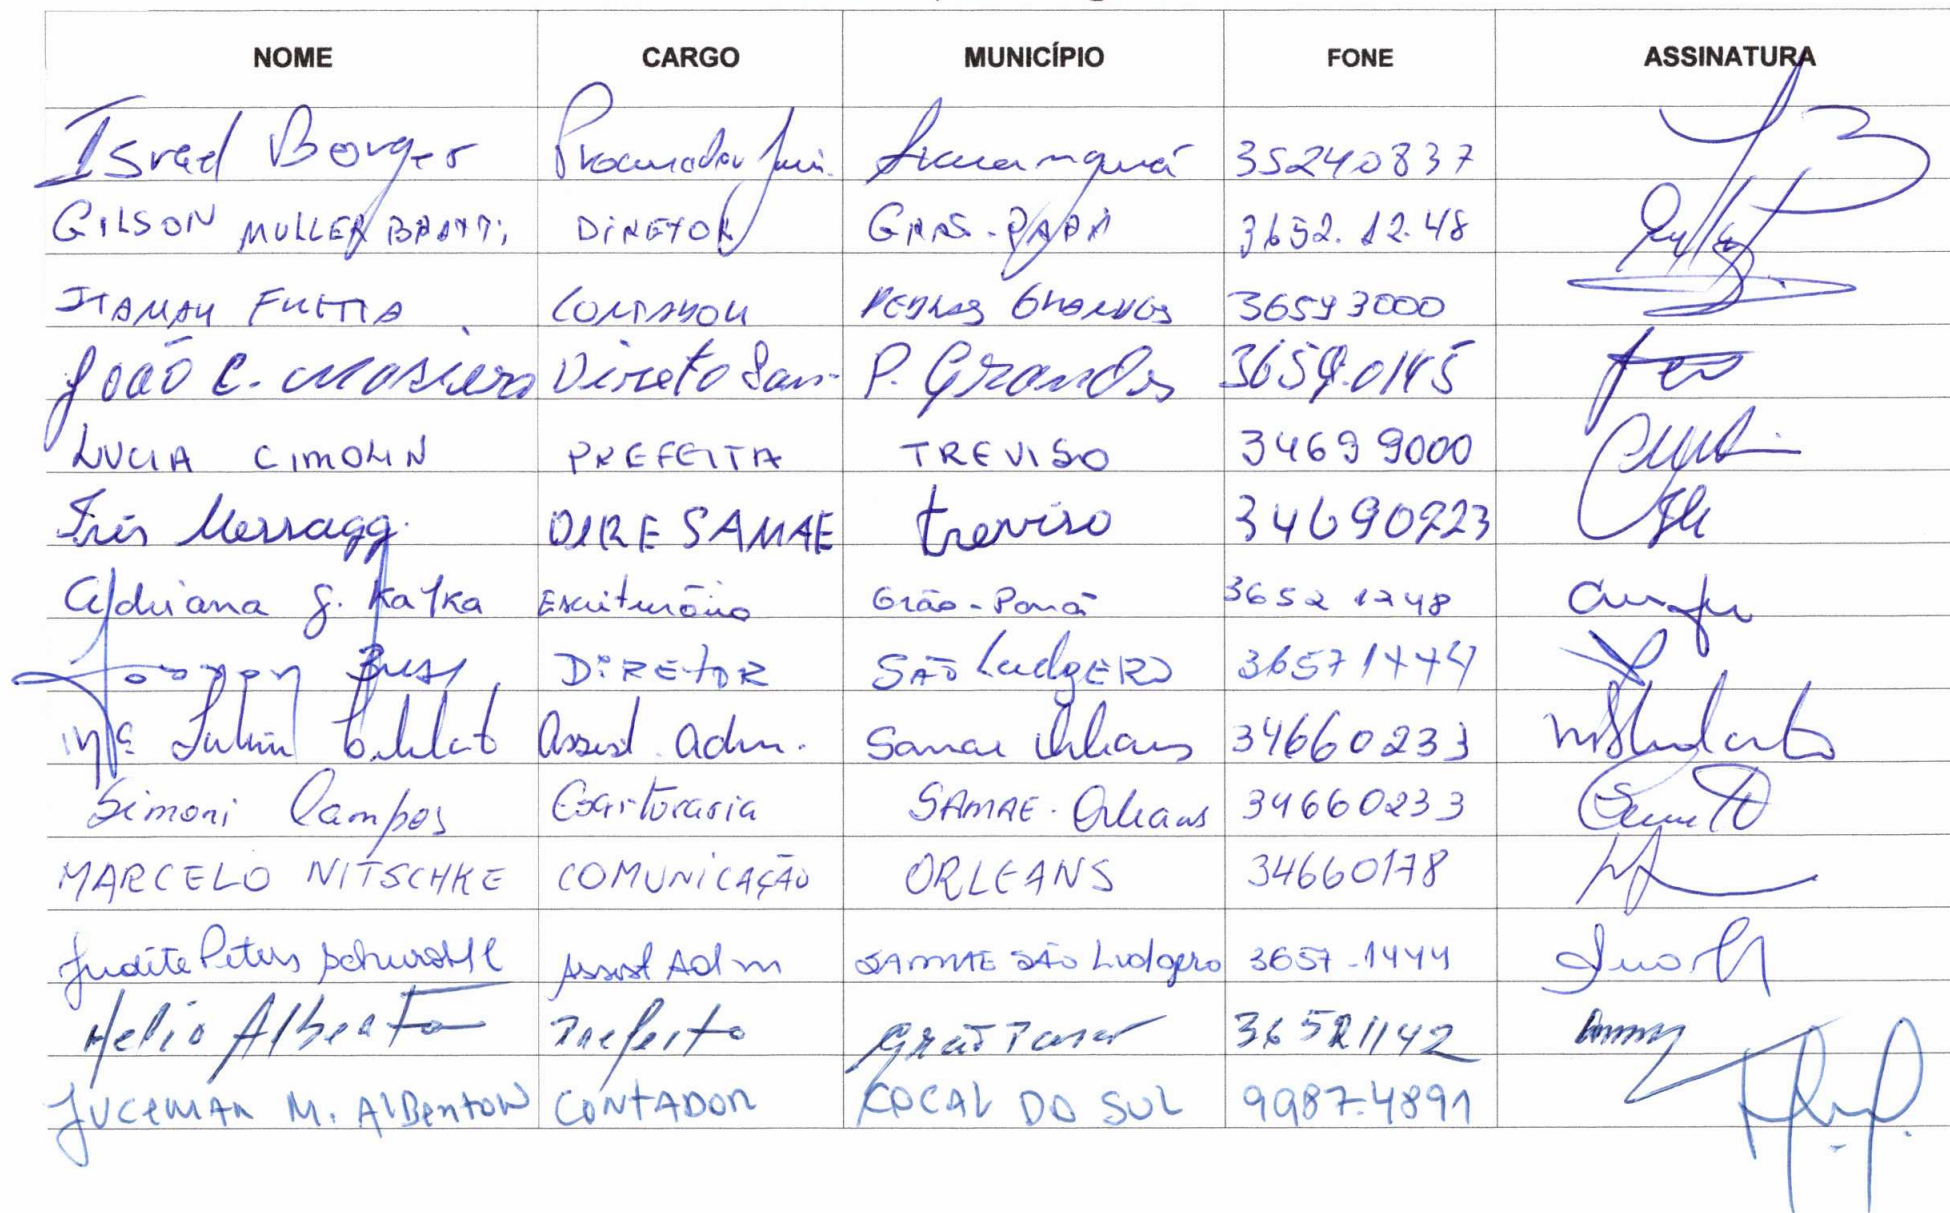 NOME CARGO MUNICÍPIO FONE ASSINATURA
Israel Borges Procurador Jurí. Araranguá 35240837
GILSON MULLER BRATTI DIRETOR GRÃO-PARÁ 3652.12.48
ITAMAR CONTADOR PEDRAS GRANDES 36593000
João C. Direto San. P. Grandes 3659.0145
LUCIA CIMOLIN PREFEITA TREVISO 34699000
Iris Messagg. DIRE SAMAE treviso 34690223
Adriana g. Kafka Escriturário Grão-Pará 3652 1248
DIRETOR SÃO LudgERO 36571444
Mª Assist. Adm. Samae Orleans 34660233
Simoni Campos Escrituraria SAMAE - Orleans 34660233
MARCELO NITSCHKE COMUNICAÇÃO ORLEANS 34660178
Judite Peters Assist Adm SAMAE SÃO Ludgero 3657-1444
Helio Alberto Prefeito Grão Pará 36521142
JUCEMAR M. AlBERTON CONTADOR COCAL DO SUL 9987-4891